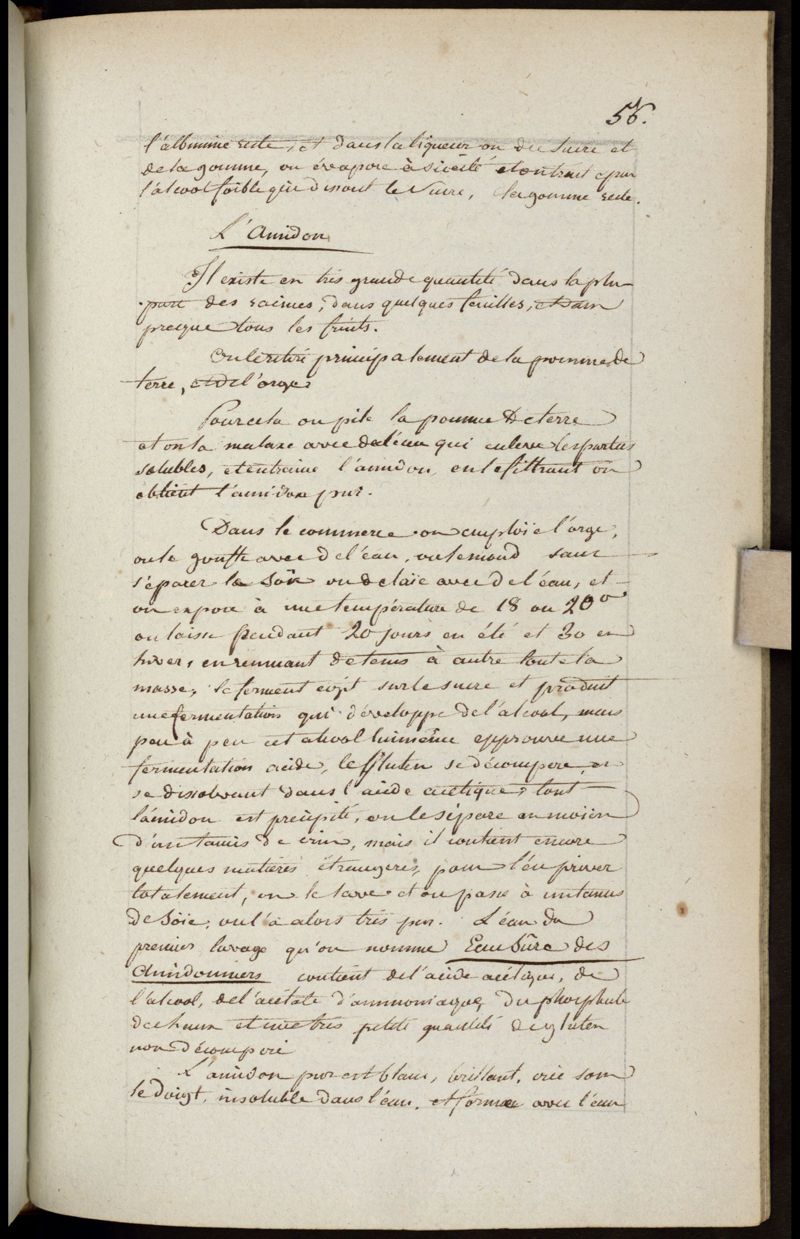 56.
l'albumine reste, et dans la liqueur on du sucre et
de la gomme, on évapore à siccité et on traite par
l'alcool foible qui dissout le sucre, la gomme reste.
L'Amidon
Il existe en très grande quantité dans la plu-
part des racines, dans quelques feuilles, et dans
presque tous les fruits.
On le retire principalement de la pomme de
terre, et de l'orge.
Pour cela on pile la pomme de terre
et on la malaxe avec de l'eau qui enleve les parties
solubles, et entraine l'amidon, en le filtrant on
obtient l'amidon pur.
Dans le commerce on emploïe l'orge,
on le gonfle avec de l'eau, on le moud sans
séparer le son on delaïe avec de l'eau, et
on expose à une température de 18 ou 20°
on laisse pendant 20 jours en été et 30 en
hiver, en remuant de tems à autre toute la
masse, le ferment agit sur le sucre et produit
une fermentation qui développe de l'alcool, mais
peu à peu cet alcool luimême epprouve une
fermentation acide, le gluten se décompose, en
se dissolvant dans l'acide acétique, tout
l'amidon est précipité, on le sépare au moïen
d'un tamis de crin, mais il contient encore
quelques matières étrangeres, pour l'en priver
totalement, on le lave et on passe à un tamis
de soïe, on l'a alors très pur. L'eau du
premier lavage qu'on nomme Eau sûre des
Amidonniers contient de l'acide acétique, de
l'alcool, de l'acétate d'ammoniaque, du phosphate
de chaux et une très petite quantité de gluten
non décomposé
L'amidon pur est blanc, brillant, crie sous
le doigt, insoluble dans l'eau, et forme avec l'eau